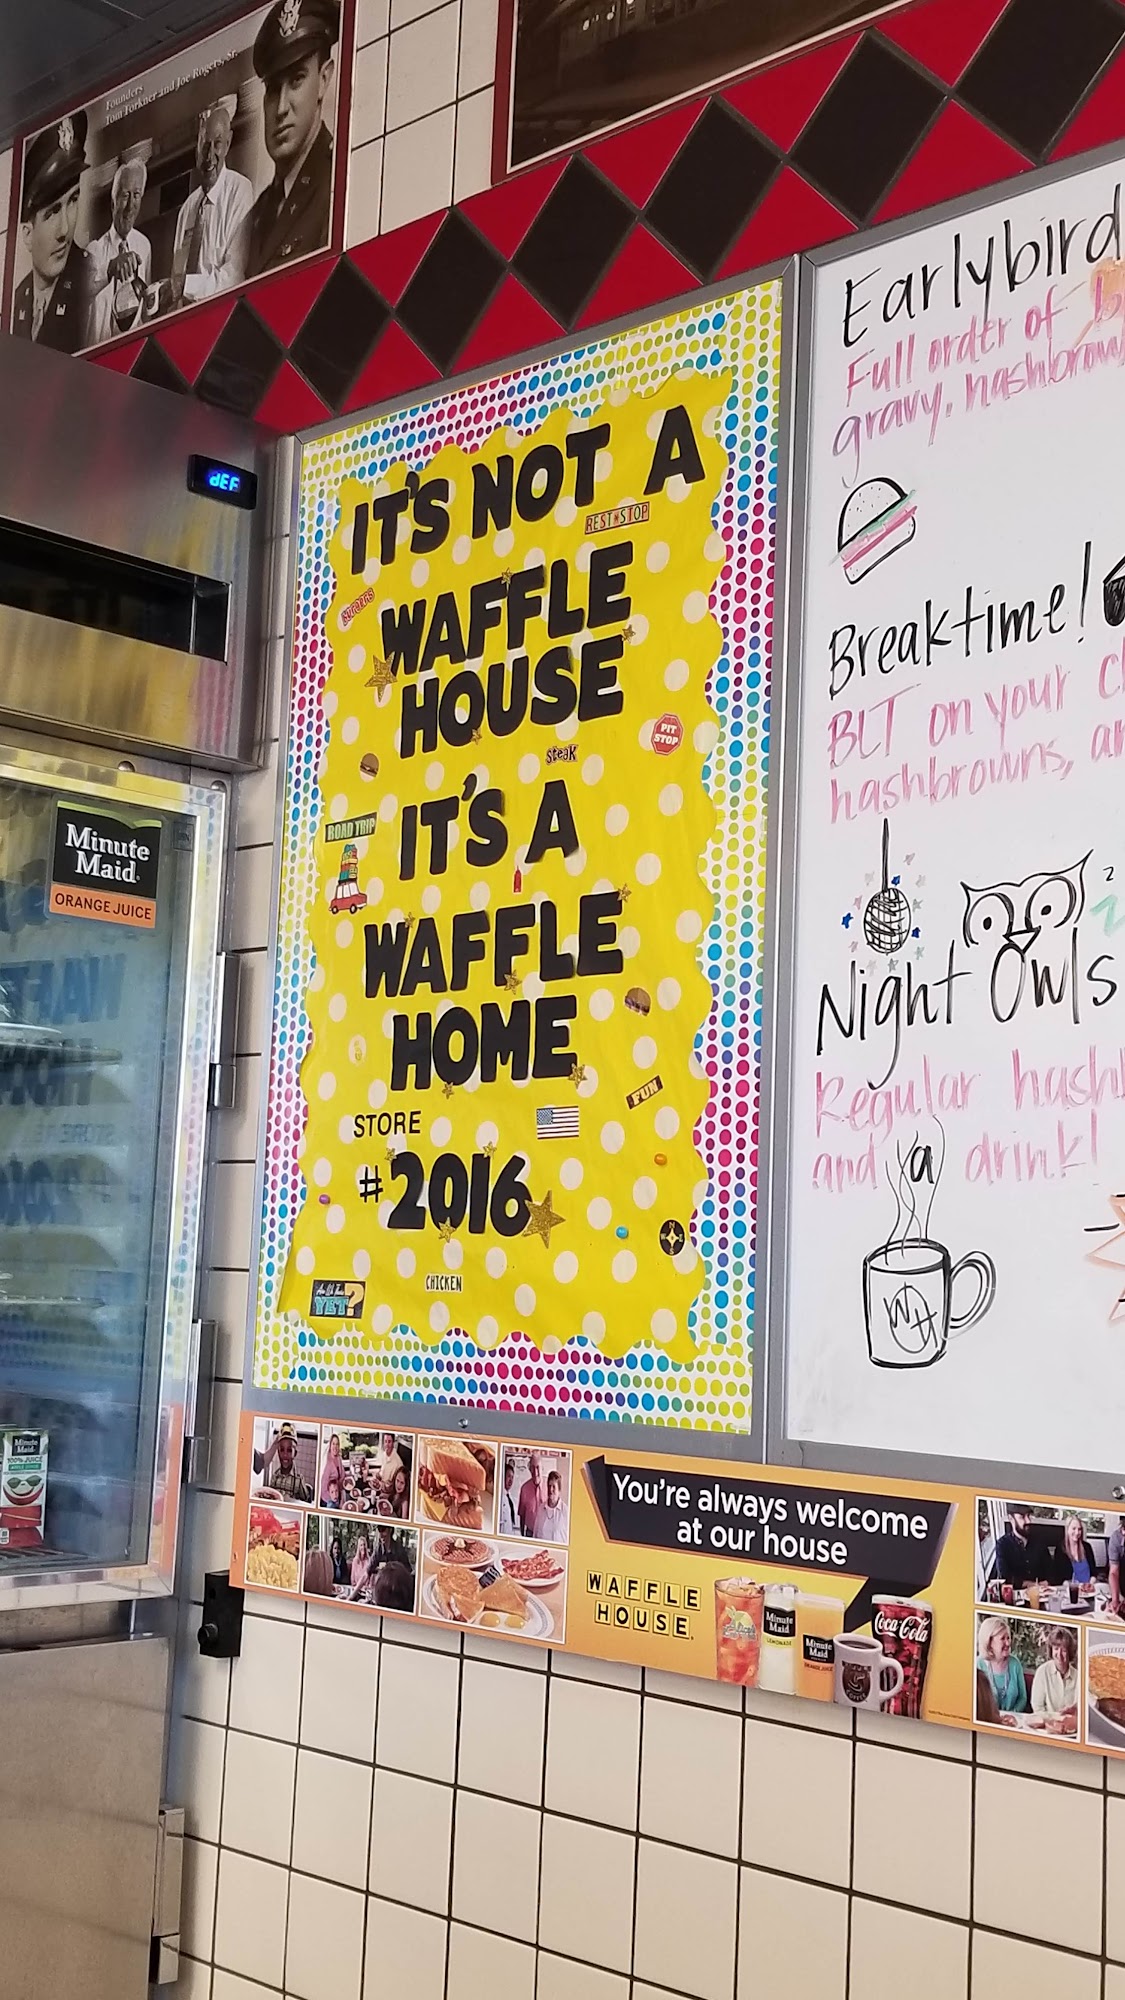 Founders
Tom Forkner and Joe Rogers, Sr.
dEF
Minute
Maid
ORANGE JUICE
IT'S NOT A
REST STOP
BURGERS
WAFFLE
HOUSE
PIT
STOP
steak
ROAD TRIP
IT'S A
WAFFLE
HOME
FUN
STORE
#2016
CHICKEN
Are We There
YET?
Earlybird
Full order of b
gravy, hashbrow
Breaktime!
BLT on your
hashbrowns, an
z
Night Owls
Regular hash
and a drink!
WH
You're always welcome
at our house
WAFFLE
HOUSE
Minute
Maid
LEMONADE
Minute
Maid
ORANGE JUICE
Coca-Cola
COFFEE
Minute
Maid
100% JUICE
APPLE JUICE